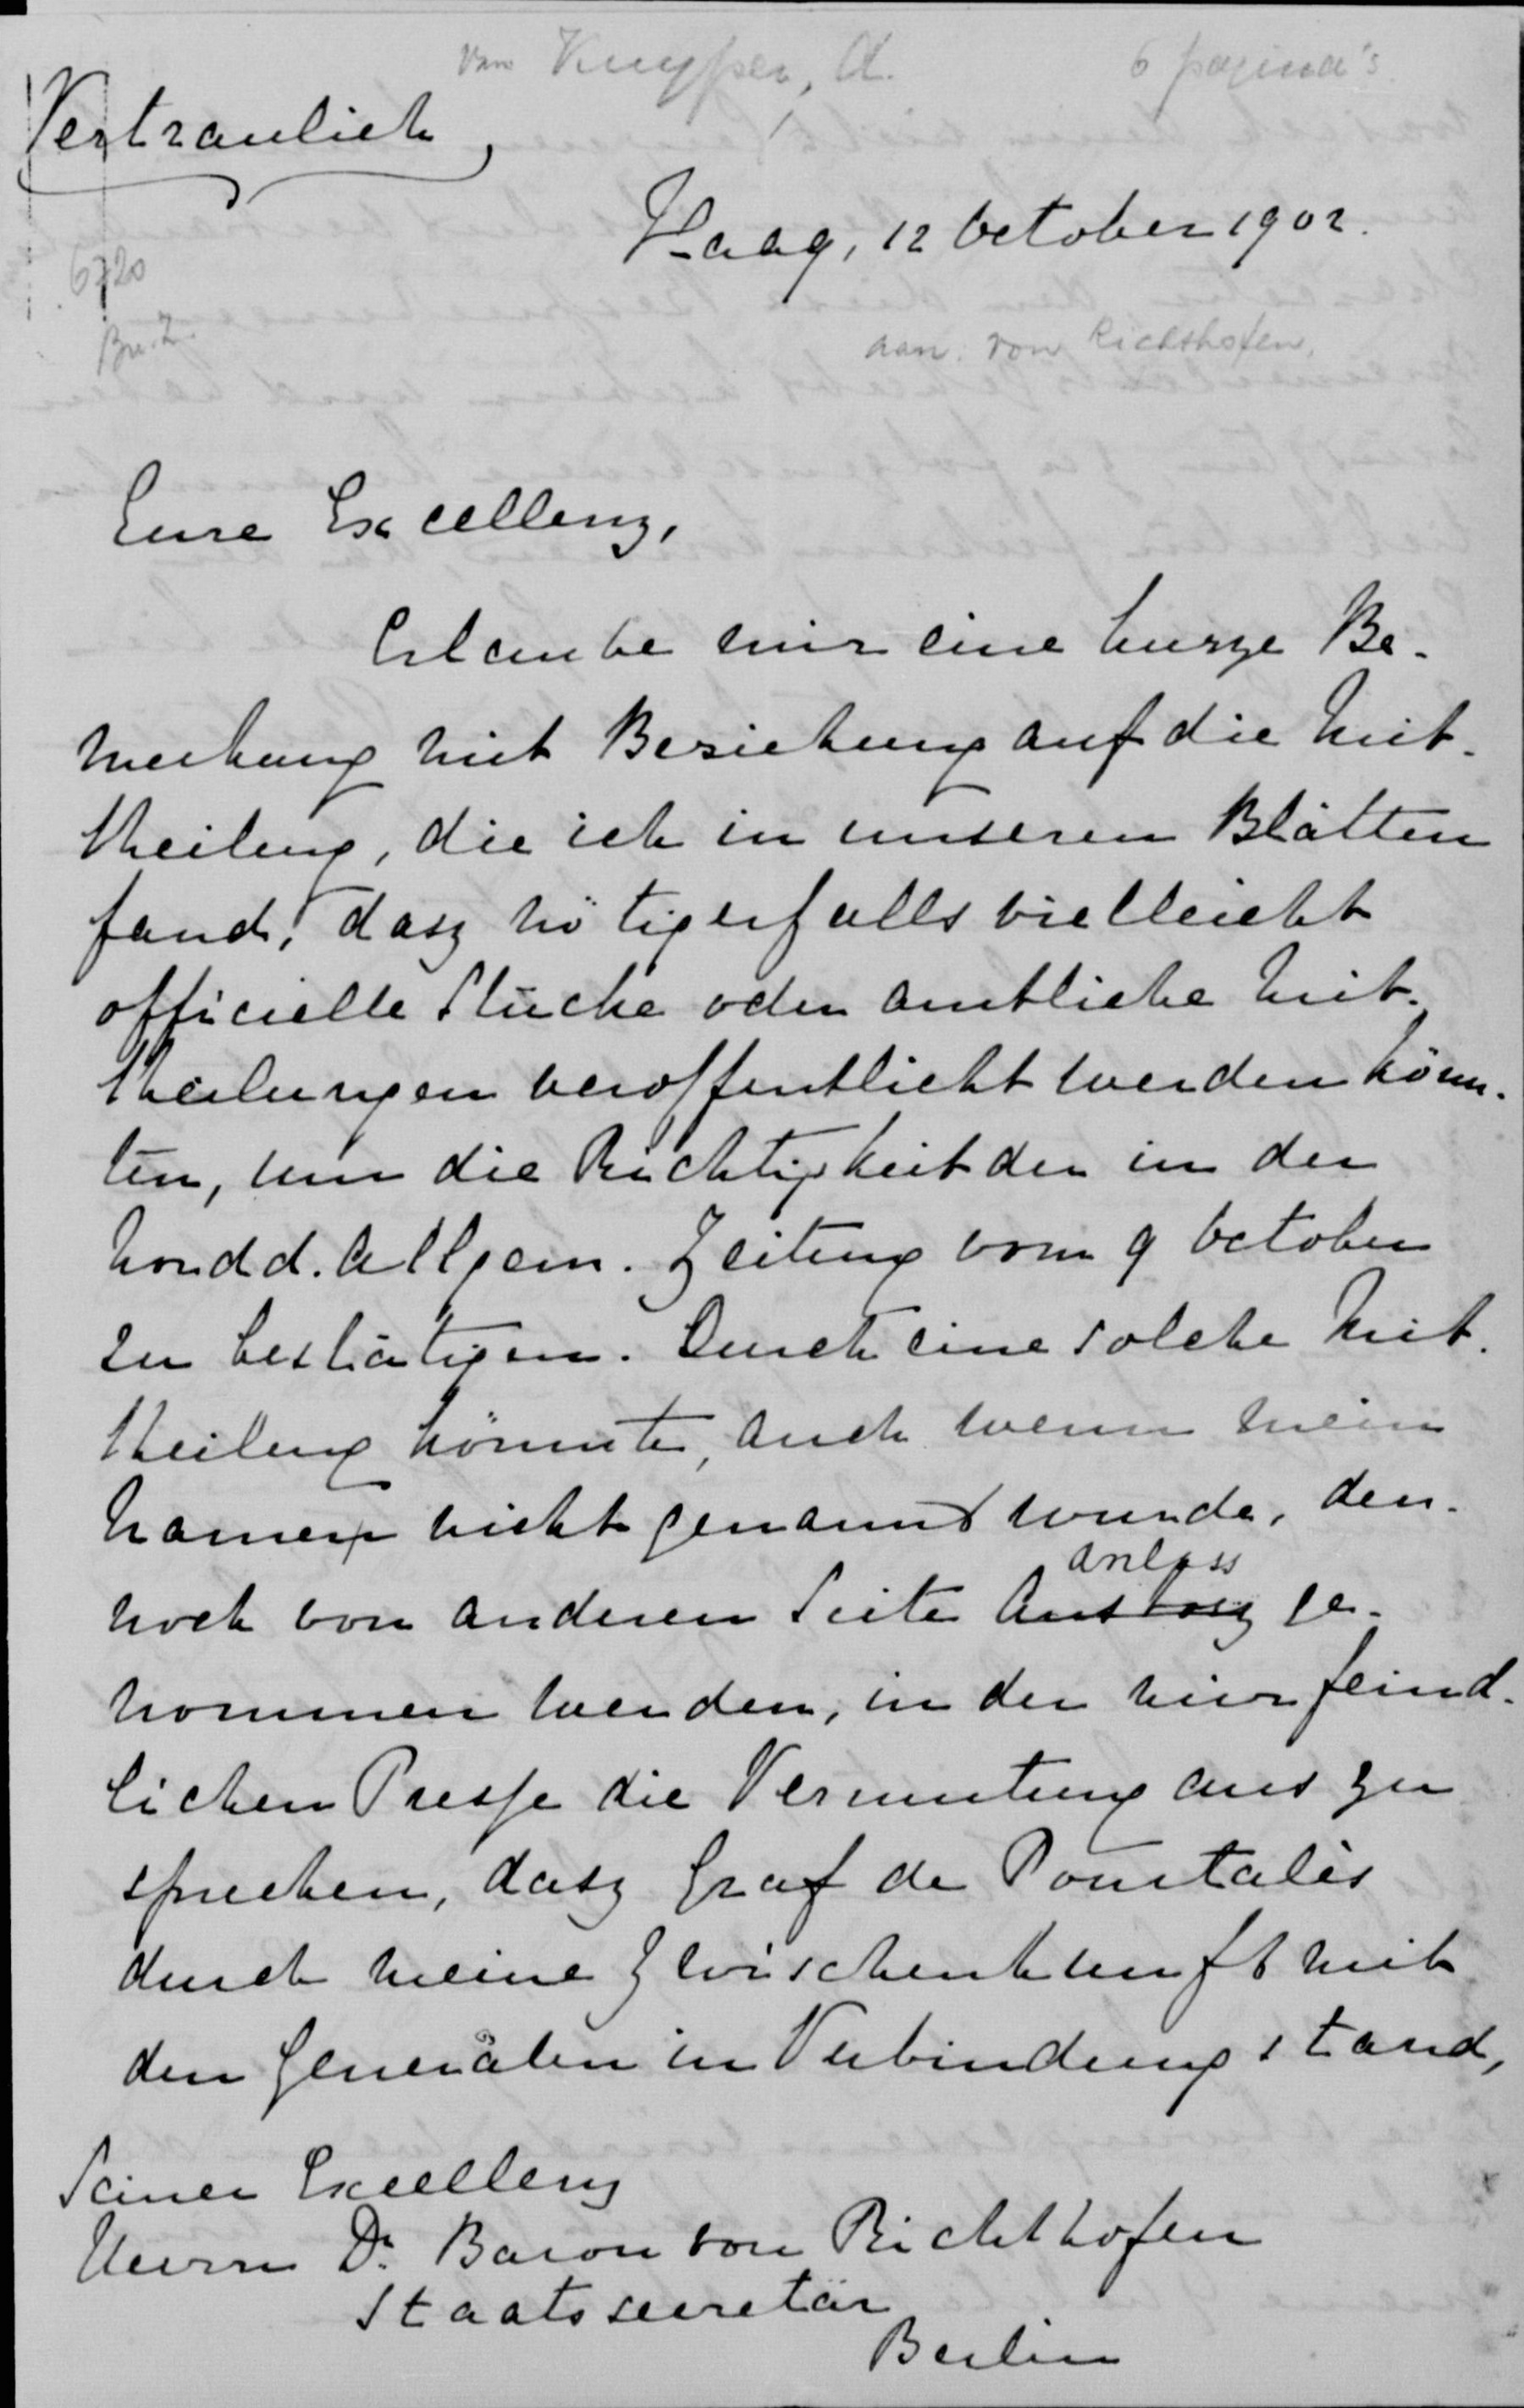 van Kuyper, A.
6 pagina's.
Vertraulich,
Haag, 12 October 1902.
6720
aan. von Richthofen,
Eure Excellenz,
Erlaube mir eine kurze Be-
merkung mit Beziehung auf die Mit-
theilung, die ich in unseren Blätten
fand, dasz nötigerfalls vielleicht
officielle Stücke oder amtliche Mit-
theilungen veroffentlicht werden könn-
ten, um die Richtigkeit der in der
Nordd. Allgem. Zeitung vom 9 October
zu bestätigen. Durch eine solche Mit-
theilung könnte, auch wenn mein
Namen nicht genannt wurde, den-
noch von anderen Seite anlass ge-
nommen werden, in der mir feind-
lichen Presse die Vermutung aus zu
sprechen, dasz Graf de Pourtalès
durch meine Zwischenkunft mit
den Generälen in Verbindung stand,
Seiner Excellenz
Herrn Dr. Baron von Richthofen
Staatssecretär
Berlin